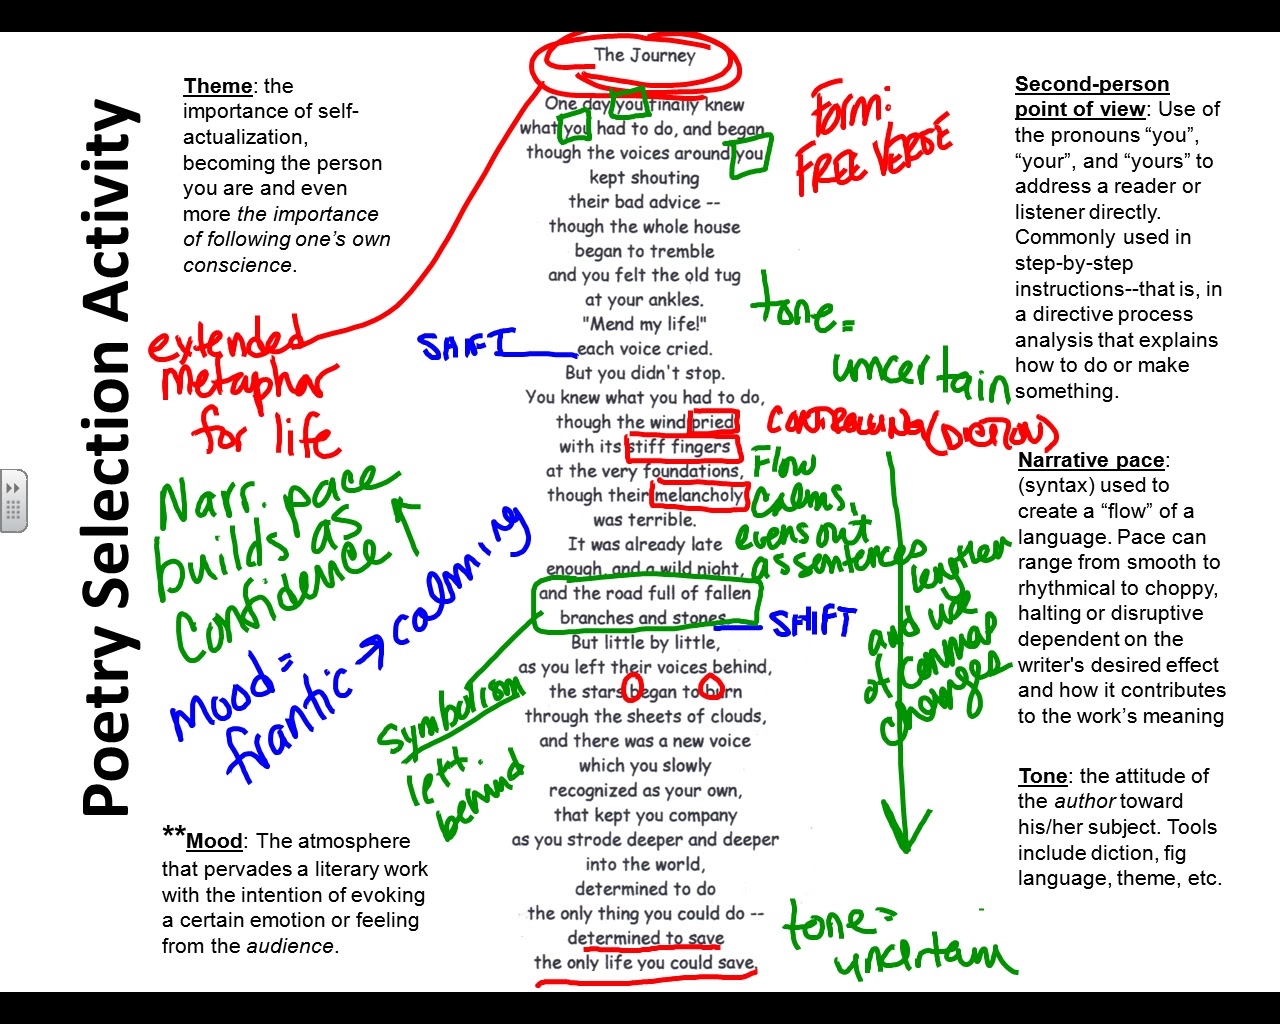 Poetry Selection Activity
Theme: the
importance of self-
actualization,
becoming the person
you are and even
more the importance
of following one's own
conscience.
extended
metaphor
for life
Narr. pace
builds as
confidence ↑
mood =
frantic → calming
**Mood: The atmosphere
that pervades a literary work
with the intention of evoking
a certain emotion or feeling
from the audience.
The Journey
One day you finally knew
what you had to do, and began,
though the voices around you
kept shouting
their bad advice --
though the whole house
began to tremble
and you felt the old tug
at your ankles.
"Mend my life!"
each voice cried.
But you didn't stop.
You knew what you had to do,
though the wind pried
with its stiff fingers
at the very foundations,
though their melancholy
was terrible.
It was already late
enough, and a wild night,
and the road full of fallen
branches and stones.
But little by little,
as you left their voices behind,
the stars began to burn
through the sheets of clouds,
and there was a new voice
which you slowly
recognized as your own,
that kept you company
as you strode deeper and deeper
into the world,
determined to do
the only thing you could do --
determined to save
the only life you could save.
SHIFT
Symbolism
left
behind
Form:
FREE VERSE
tone =
uncertain
CONTROLLING (DICTION)
Flow
calms,
evens out
as sentences
lengthen
and use
of commas
changes
SHIFT
tone =
uncertain
Second-person
point of view: Use of
the pronouns “you”,
“your”, and “yours” to
address a reader or
listener directly.
Commonly used in
step-by-step
instructions--that is, in
a directive process
analysis that explains
how to do or make
something.
Narrative pace:
(syntax) used to
create a “flow” of a
language. Pace can
range from smooth to
rhythmical to choppy,
halting or disruptive
dependent on the
writer's desired effect
and how it contributes
to the work’s meaning
Tone: the attitude of
the author toward
his/her subject. Tools
include diction, fig
language, theme, etc.